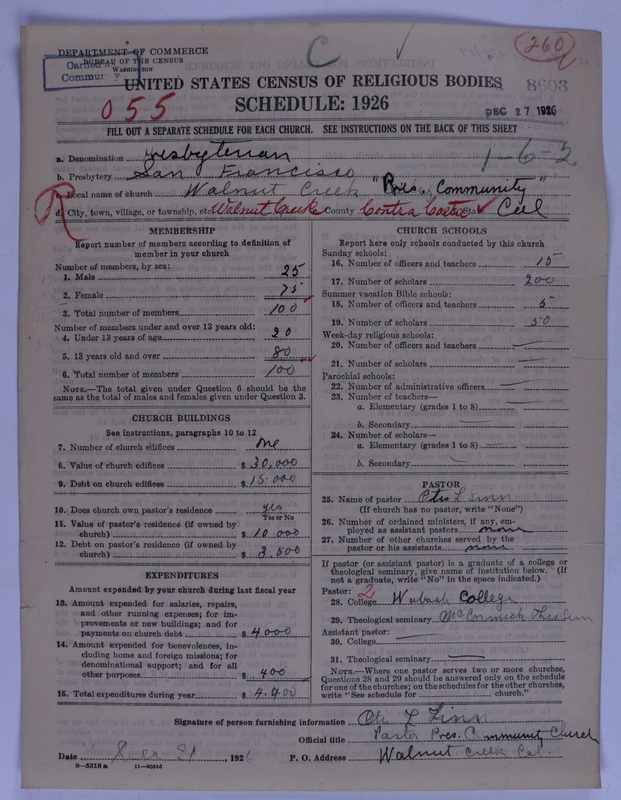 DEPARTMENT OF COMMERCE
BUREAU OF THE CENSUS
WASHINGTON
C
260
8603
UNITED STATES CENSUS OF RELIGIOUS BODIES
055
SCHEDULE: 1926
DEC 27 1926
FILL OUT A SEPARATE SCHEDULE FOR EACH CHURCH. SEE INSTRUCTIONS ON THE BACK OF THIS SHEET
1-6-2
a. Denomination Presbyterian
b. Presbytery San Francisco
c. Local name of church Walnut Creek "Pres. Community"
R
d. City, town, village, or township, etc. Walnut Creek County Contra Costa State Cal
MEMBERSHIP
Report number of members according to definition of member in your church
Number of members, by sex:
1. Male 25
2. Female 75
3. Total number of members 100
Number of members under and over 13 years old:
4. Under 13 years of age 20
5. 13 years old and over 80
6. Total number of members 100
NOTE.—The total given under Question 6 should be the
same as the total of males and females given under Question 3.
CHURCH BUILDINGS
See instructions, paragraphs 10 to 12
7. Number of church edifices one
8. Value of church edifices $ 30,000
9. Debt on church edifices $ 15.000
10. Does church own pastor's residence yes
Yes or No
11. Value of pastor's residence (if owned by
church) $ 10 000
12. Debt on pastor's residence (if owned by
church) $ 3.500
EXPENDITURES
Amount expended by your church during last fiscal year
13. Amount expended for salaries, repairs,
and other running expenses; for im-
provements or new buildings; and for
payments on church debt $ 4.000
14. Amount expended for benevolences, in-
cluding home and foreign missions; for
denominational support; and for all
other purposes $ 400
15. Total expenditures during year $ 4.400
CHURCH SCHOOLS
Report here only schools conducted by this church
Sunday schools:
16. Number of officers and teachers 15
17. Number of scholars 200
Summer vacation Bible schools:
18. Number of officers and teachers 5
19. Number of scholars 50
Week-day religious schools:
20. Number of officers and teachers
21. Number of scholars
Parochial schools:
22. Number of administrative officers
23. Number of teachers—
a. Elementary (grades 1 to 8)
b. Secondary
24. Number of scholars—
a. Elementary (grades 1 to 8)
b. Secondary
PASTOR
25. Name of pastor Otis L Linn
(If church has no pastor, write "None")
26. Number of ordained ministers, if any, em-
ployed as assistant pastors none
27. Number of other churches served by the
pastor or his assistants none
If pastor (or assistant pastor) is a graduate of a college or
theological seminary, give name of institution below. (If
not a graduate, write "No" in the space indicated.)
Pastor: 2
28. College Wabash College
29. Theological seminary McCormick Theo Sem
Assistant pastor:
30. College
31. Theological seminary
NOTE.—Where one pastor serves two or more churches,
Questions 28 and 29 should be answered only on the schedule
for one of the churches; on the schedules for the other churches,
write "See schedule for church."
Signature of person furnishing information Otis L Linn
Official title Pastor Pres. Community Church
Date Dec 21, 1926 P. O. Address Walnut Creek Cal.
8—5518a 11—9084d